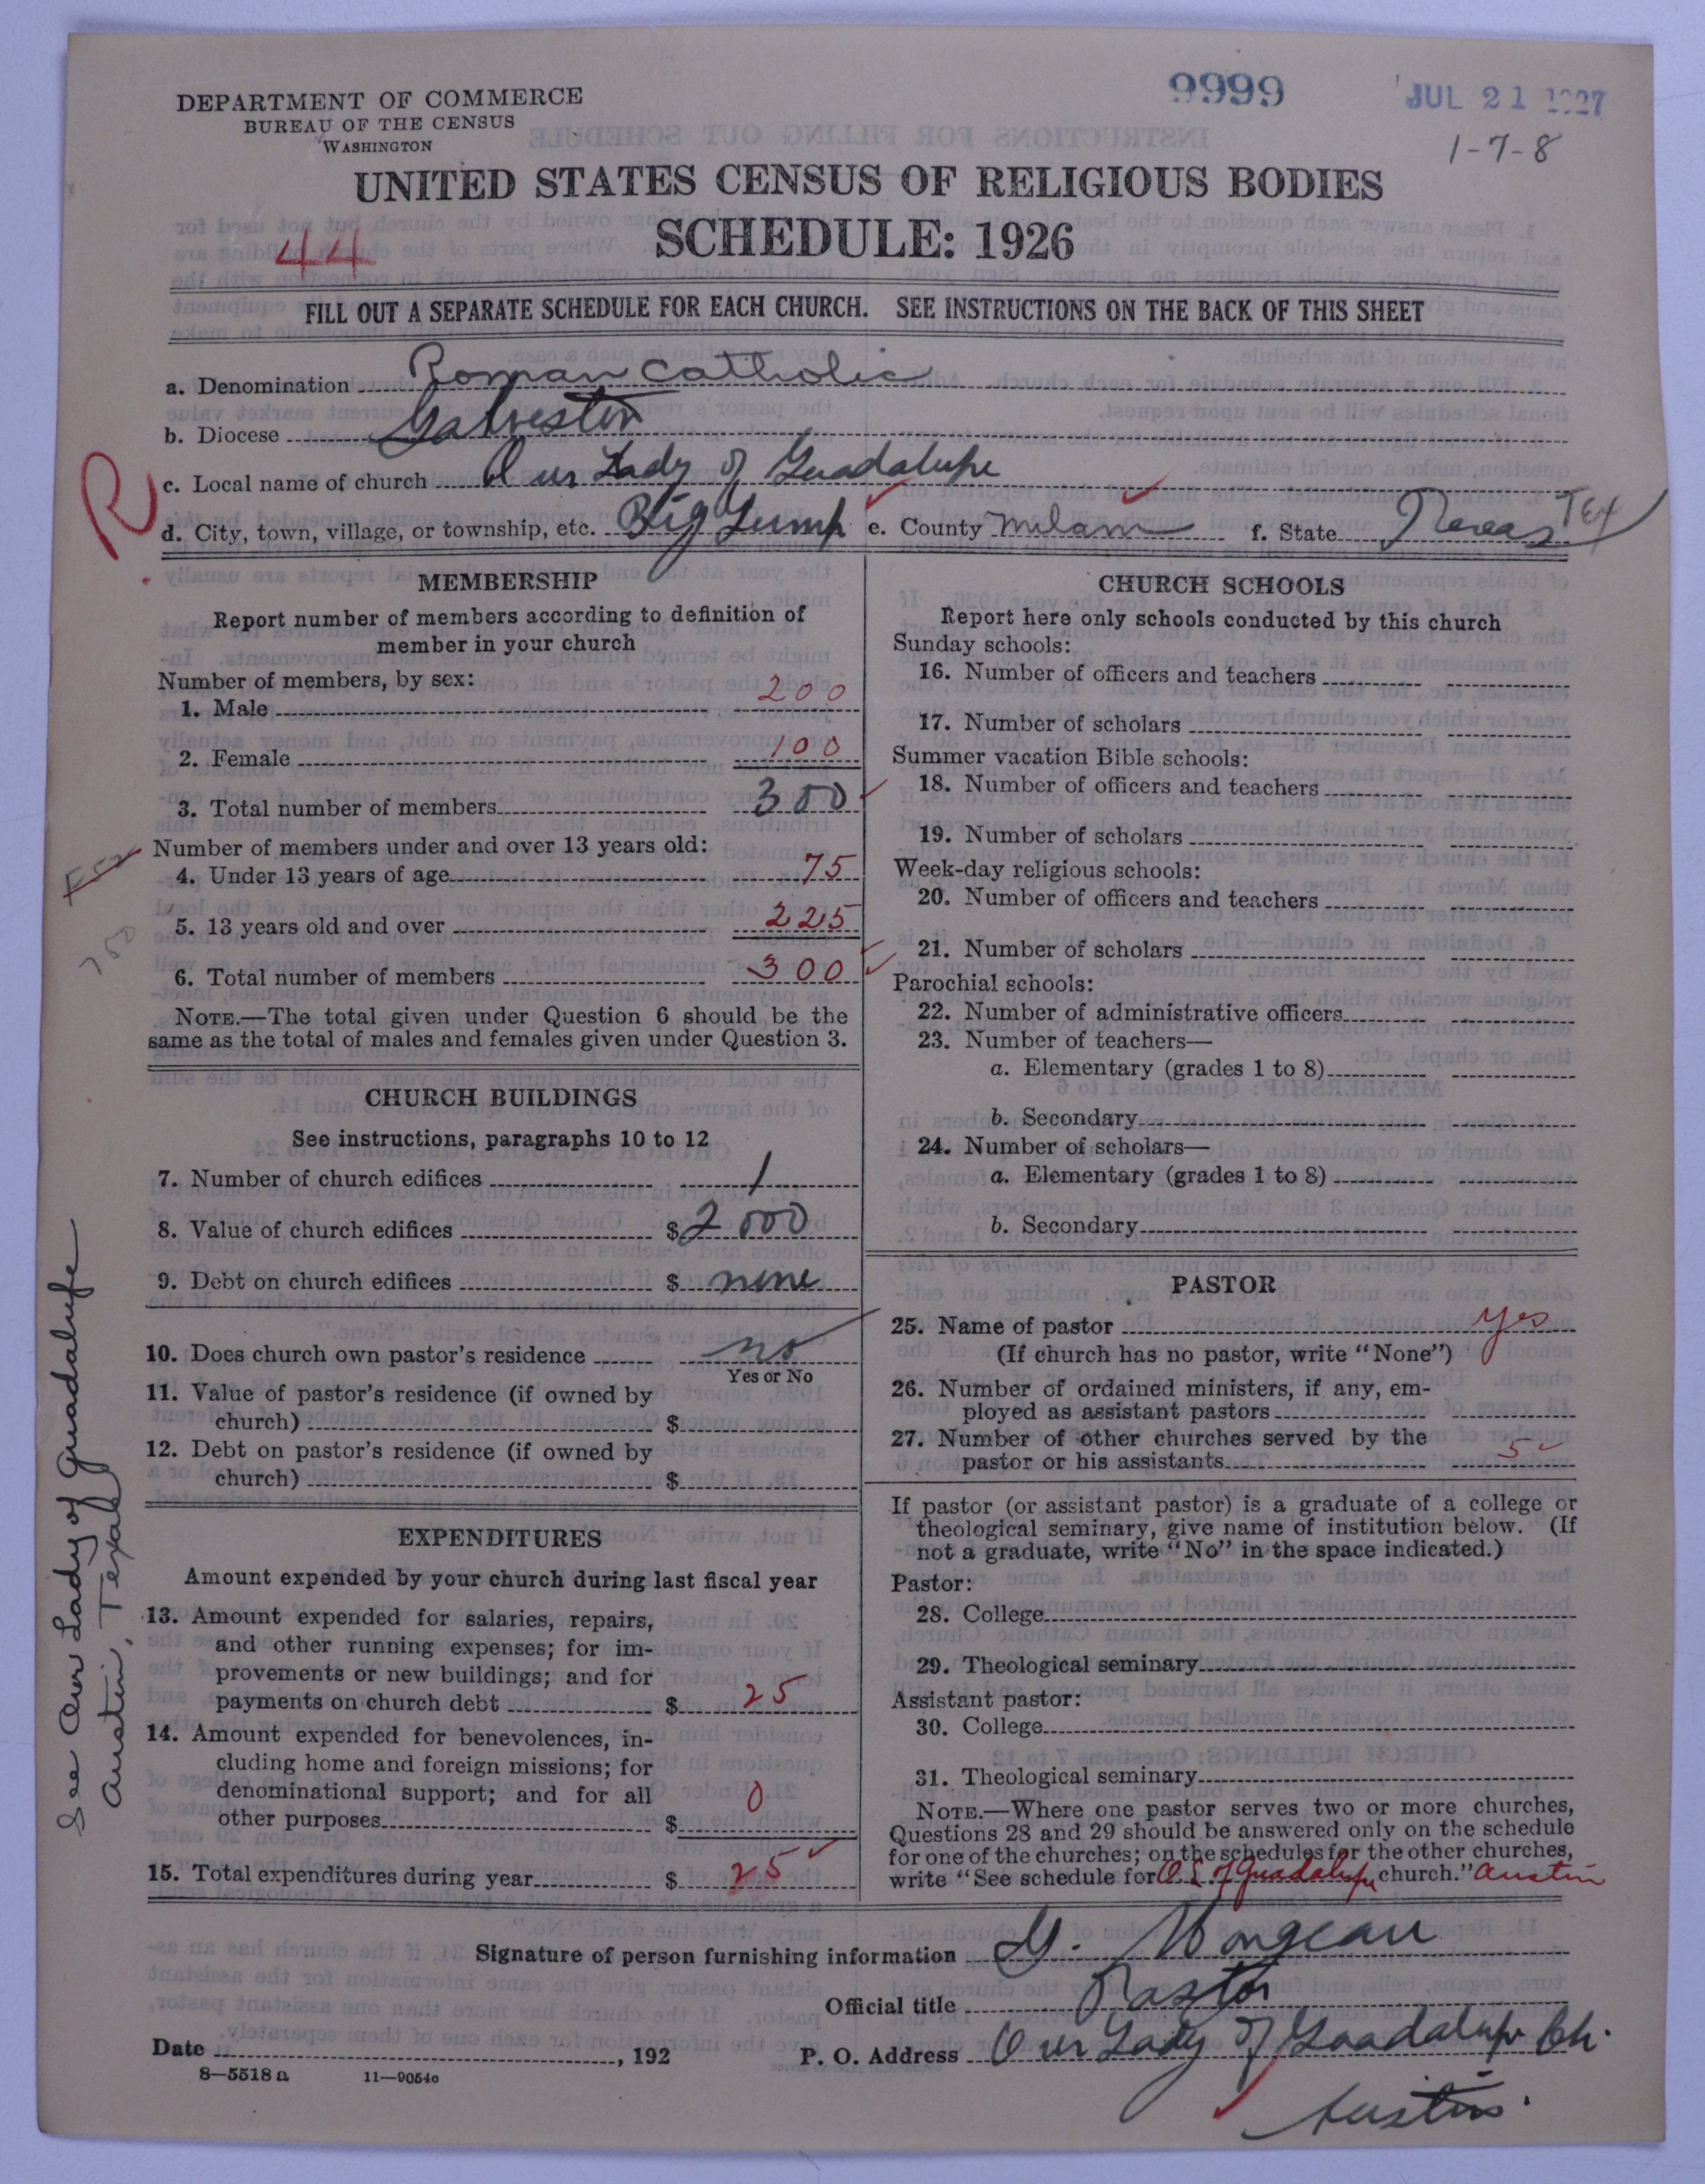 DEPARTMENT OF COMMERCE
BUREAU OF THE CENSUS
WASHINGTON
9999
JUL 21 1927
1-7-8
UNITED STATES CENSUS OF RELIGIOUS BODIES
SCHEDULE: 1926
44
FILL OUT A SEPARATE SCHEDULE FOR EACH CHURCH. SEE INSTRUCTIONS ON THE BACK OF THIS SHEET
a. Denomination Roman Catholic
b. Diocese Galveston
R
c. Local name of church Our Lady of Guadalupe
d. City, town, village, or township, etc. Big Lump e. County Milam f. State Texas TEX
MEMBERSHIP
Report number of members according to definition of
member in your church
Number of members, by sex:
1. Male 200
2. Female 100
3. Total number of members 300
Number of members under and over 13 years old:
4. Under 13 years of age 75
5. 13 years old and over 225
6. Total number of members 300
NOTE.—The total given under Question 6 should be the
same as the total of males and females given under Question 3.
CHURCH BUILDINGS
See instructions, paragraphs 10 to 12
7. Number of church edifices 1
8. Value of church edifices $ 2000
9. Debt on church edifices $ none
10. Does church own pastor's residence no
Yes or No
11. Value of pastor's residence (if owned by
church) $
12. Debt on pastor's residence (if owned by
church) $
EXPENDITURES
Amount expended by your church during last fiscal year
13. Amount expended for salaries, repairs,
and other running expenses; for im-
provements or new buildings; and for
payments on church debt $ 25
14. Amount expended for benevolences, in-
cluding home and foreign missions; for
denominational support; and for all
other purposes $ 0
15. Total expenditures during year $ 25
See Our Lady of Guadalupe
Austin, Texas
CHURCH SCHOOLS
Report here only schools conducted by this church
Sunday schools:
16. Number of officers and teachers
17. Number of scholars
Summer vacation Bible schools:
18. Number of officers and teachers
19. Number of scholars
Week-day religious schools:
20. Number of officers and teachers
21. Number of scholars
Parochial schools:
22. Number of administrative officers
23. Number of teachers—
a. Elementary (grades 1 to 8)
b. Secondary
24. Number of scholars—
a. Elementary (grades 1 to 8)
b. Secondary
PASTOR
25. Name of pastor yes
(If church has no pastor, write "None")
26. Number of ordained ministers, if any, em-
ployed as assistant pastors
27. Number of other churches served by the
pastor or his assistants 5
If pastor (or assistant pastor) is a graduate of a college or
theological seminary, give name of institution below. (If
not a graduate, write "No" in the space indicated.)
Pastor:
28. College
29. Theological seminary
Assistant pastor:
30. College
31. Theological seminary
NOTE.—Where one pastor serves two or more churches,
Questions 28 and 29 should be answered only on the schedule
for one of the churches; on the schedules for the other churches,
write "See schedule for O L of Guadalupe church." Austin
Signature of person furnishing information G. Mongeau
Official title Pastor
Date , 192
P. O. Address Our Lady of Guadalupe Ch.
Austin.
8—5518 a 11—9054c